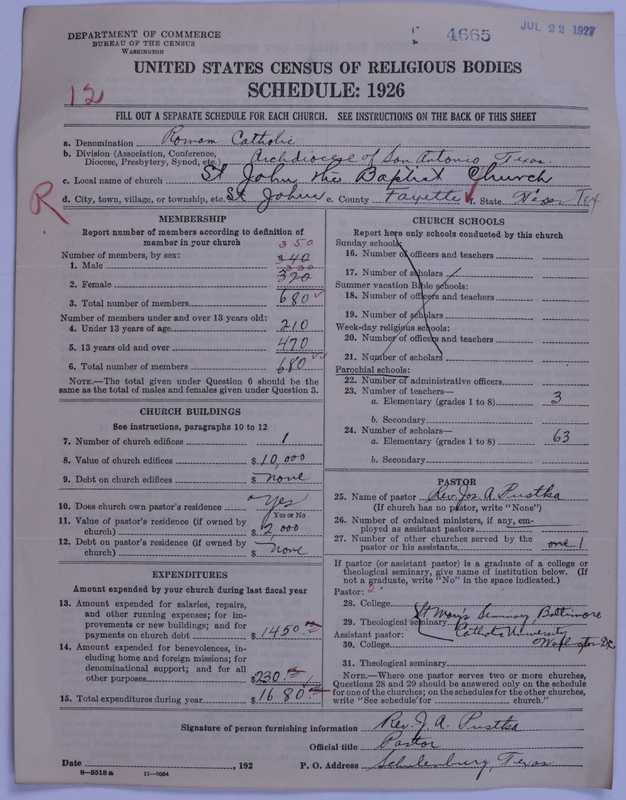 DEPARTMENT OF COMMERCE
BUREAU OF THE CENSUS
WASHINGTON
4665
JUL 22 1927
UNITED STATES CENSUS OF RELIGIOUS BODIES
SCHEDULE: 1926
12
FILL OUT A SEPARATE SCHEDULE FOR EACH CHURCH. SEE INSTRUCTIONS ON THE BACK OF THIS SHEET
a. Denomination Roman Catholic
b. Division (Association, Conference, Diocese, Presbytery, Synod, etc.) Archdiocese of San Antonio, Texas.
c. Local name of church St John the Baptist Church
R
d. City, town, village, or township, etc. St Johns e. County Fayette f. State Texas Tex
MEMBERSHIP
Report number of members according to definition of member in your church
Number of members, by sex:
350
1. Male 340
330
2. Female 320
3. Total number of members 680
Number of members under and over 13 years old:
4. Under 13 years of age 210
5. 13 years old and over 470
6. Total number of members 680
NOTE.—The total given under Question 6 should be the same as the total of males and females given under Question 3.
CHURCH BUILDINGS
See instructions, paragraphs 10 to 12
7. Number of church edifices 1
8. Value of church edifices $ 10,000
9. Debt on church edifices $ none
10. Does church own pastor's residence Yes
Yes or No
11. Value of pastor's residence (if owned by church) $ 2,000
12. Debt on pastor's residence (if owned by church) $ none
EXPENDITURES
Amount expended by your church during last fiscal year
13. Amount expended for salaries, repairs, and other running expenses; for improvements or new buildings; and for payments on church debt $ 1450.00
14. Amount expended for benevolences, including home and foreign missions; for denominational support; and for all other purposes $ 230.00
15. Total expenditures during year $ 1680.00
CHURCH SCHOOLS
Report here only schools conducted by this church
Sunday schools:
16. Number of officers and teachers
17. Number of scholars
Summer vacation Bible schools:
18. Number of officers and teachers
19. Number of scholars
Week-day religious schools:
20. Number of officers and teachers
21. Number of scholars
Parochial schools:
22. Number of administrative officers
23. Number of teachers—
a. Elementary (grades 1 to 8) 3
b. Secondary
24. Number of scholars—
a. Elementary (grades 1 to 8) 63
b. Secondary
PASTOR
25. Name of pastor Rev. Jos. A. Pustka
(If church has no pastor, write "None")
26. Number of ordained ministers, if any, employed as assistant pastors
27. Number of other churches served by the pastor or his assistants one 1
If pastor (or assistant pastor) is a graduate of a college or theological seminary, give name of institution below. (If not a graduate, write "No" in the space indicated.)
Pastor: 2
28. College
29. Theological seminary St Mary's Seminary, Baltimore
Assistant pastor: Catholic University
30. College Washington DC
31. Theological seminary
NOTE.—Where one pastor serves two or more churches, Questions 28 and 29 should be answered only on the schedule for one of the churches; on the schedules for the other churches, write "See schedule for church."
Signature of person furnishing information Rev. J. A. Pustka
Official title Pastor
Date , 192 P. O. Address Schulenburg, Texas
8—5518a 11—9034